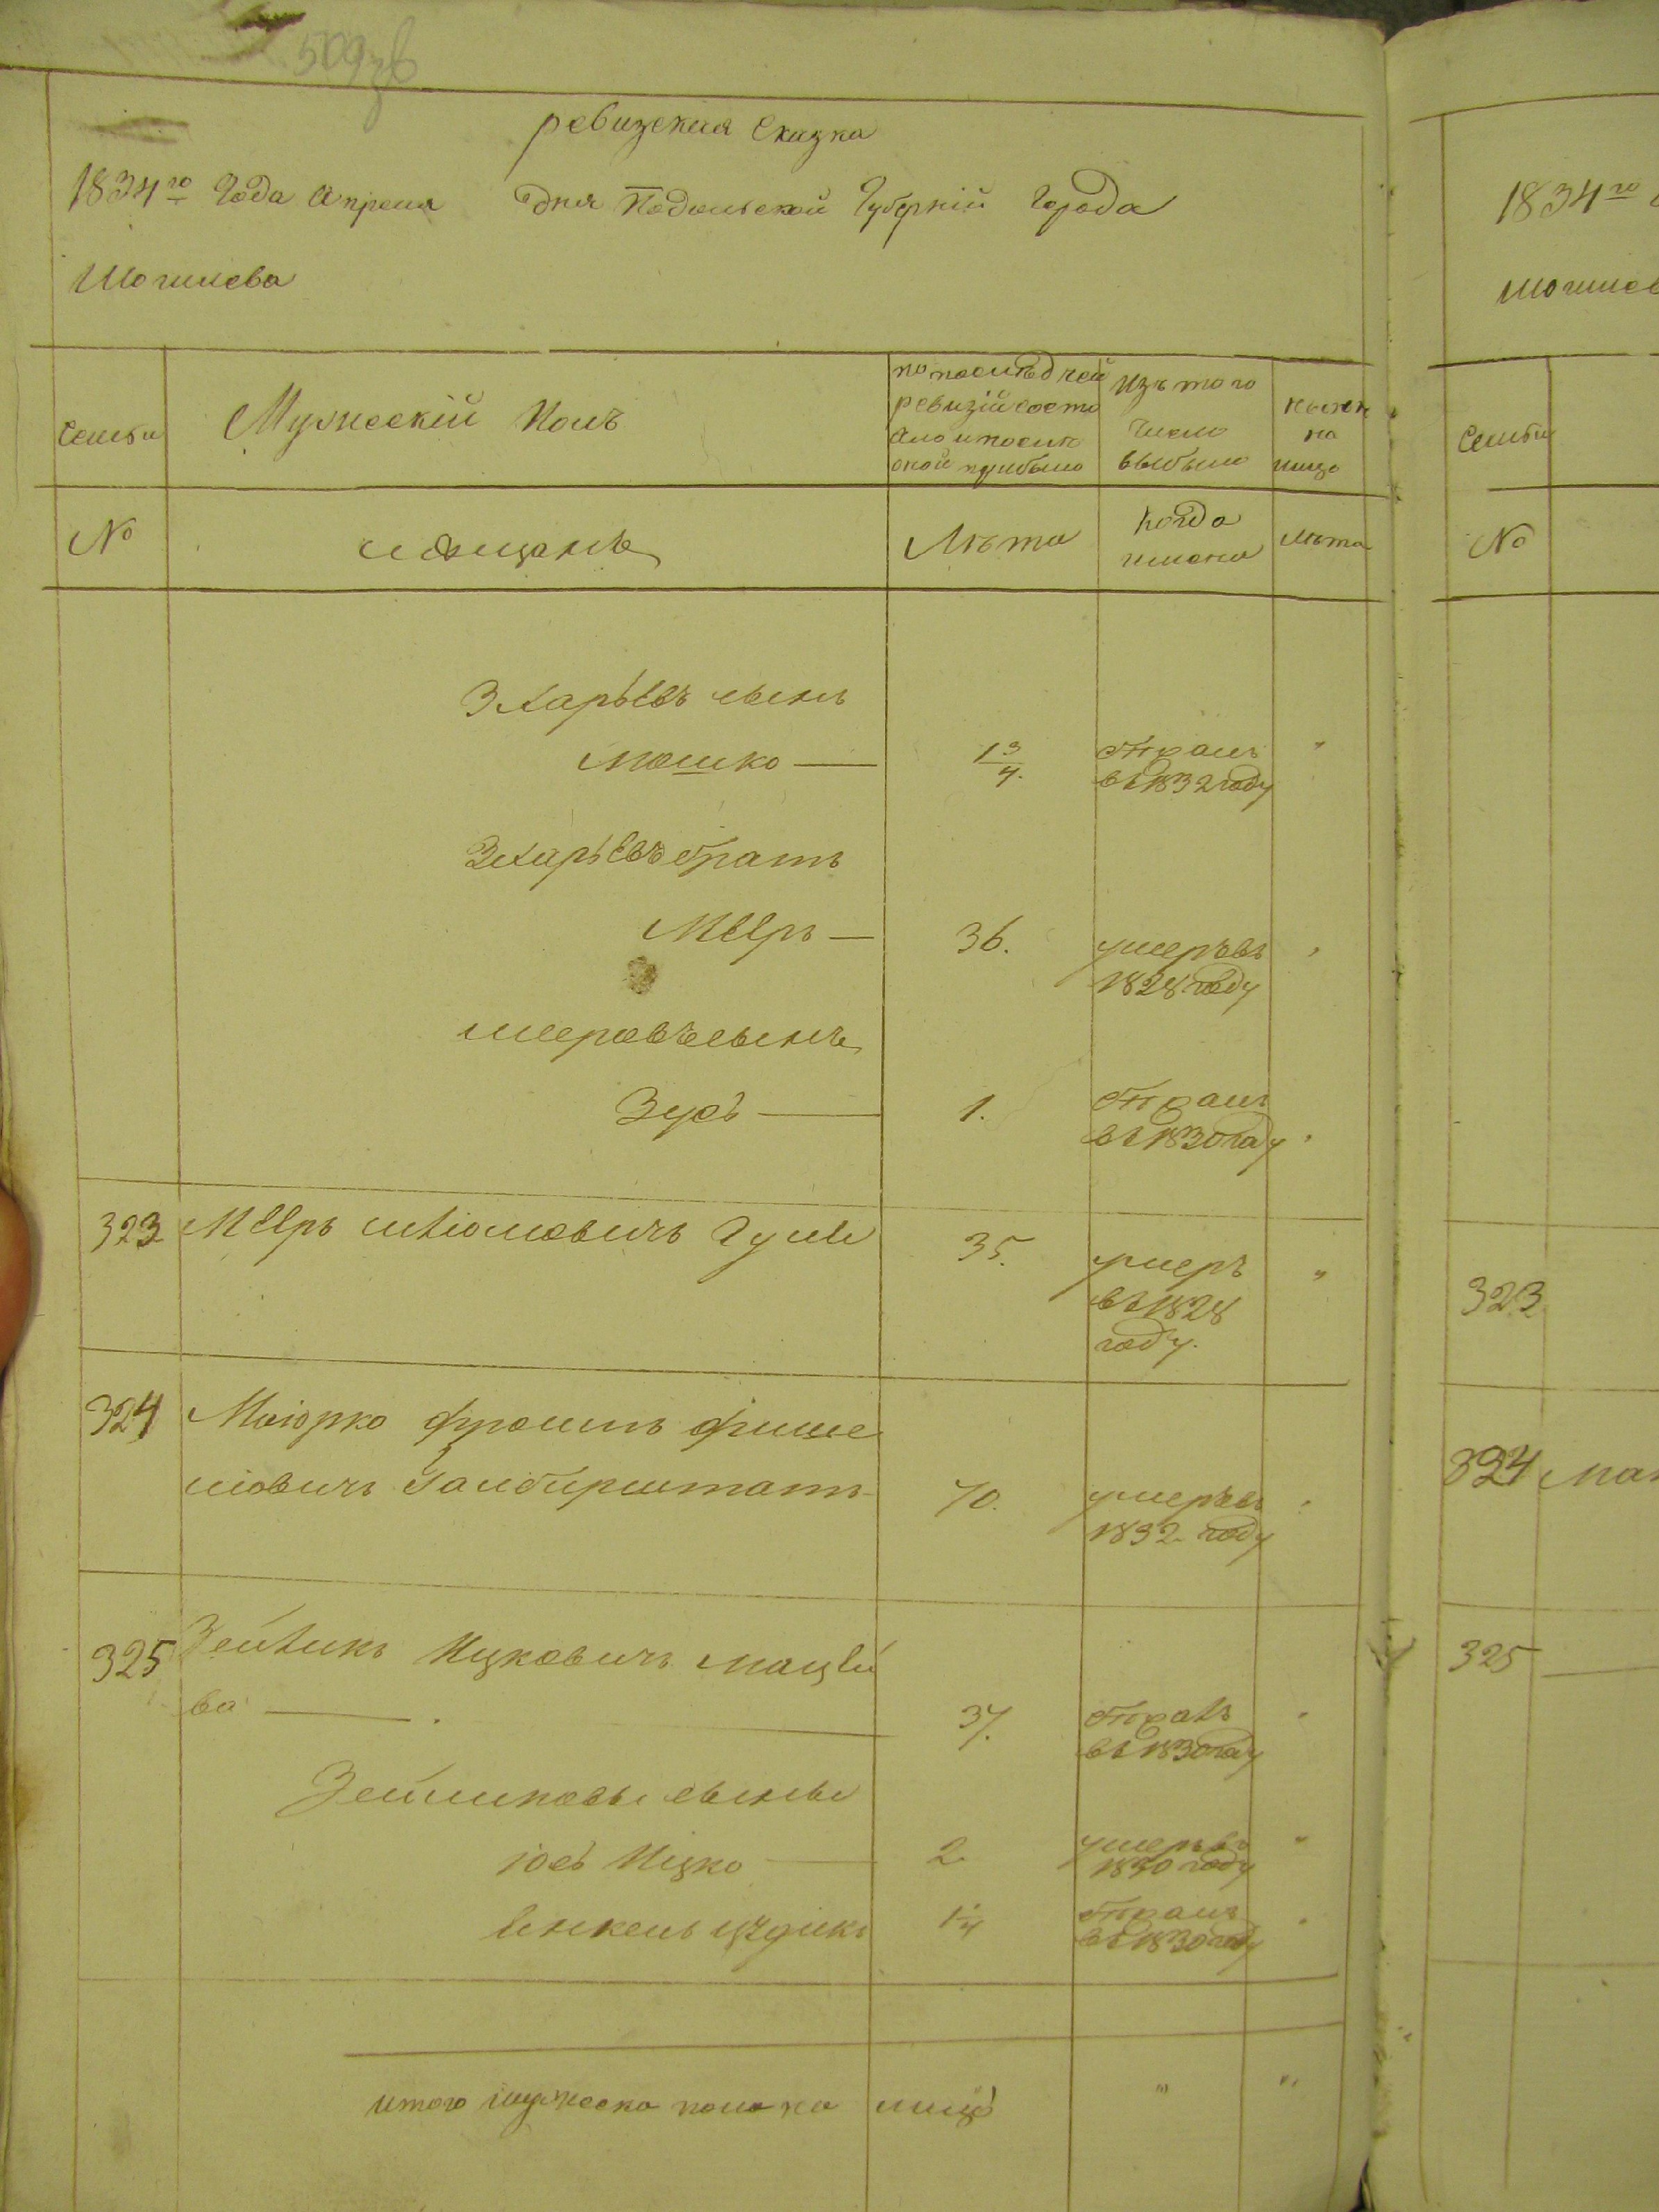 509
ревизская Сказка
1834го Года апреля дня Подольской Губернiи Города
Могилева
Семьи
Мужескiй Полъ
по последней
ревизiи состо
яло и после
оной прибыло
Изъ того
числа
выбыло
ныне
на
лицо
№
мещане
Лѣта
когда
имено
лѣта
Зхарьевъ сынъ
Мошко
1 3/4.
отданъ
въ 1832 году
"
Зхарьевъ братъ
Мееръ
36.
умеръ въ
1828 году
"
мееровъ сынъ
Зусь
1.
въ 1830 году
"
323
Мееръ
35.
умеръ
въ 1828
году.
"
324
Маiорко фроимъ фише
лiовичъ Галбирштатъ
70.
умеръ въ
1832 году
"
325
Зейликъ Ицковичъ
ва
37.
въ 1830 году
"
Зейликовы сыны
iось Ицко
2
умеръ въ
1830 году
"
1 1/4
въ 1830 году
"
итого мужеска пола на лицо
"
"
1834го
могилев
Семьи
№
323
324
325